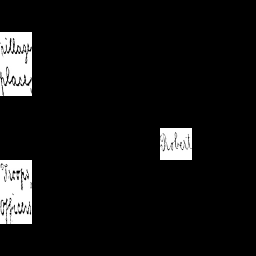 village
place,
Robert
Troops,
Officers